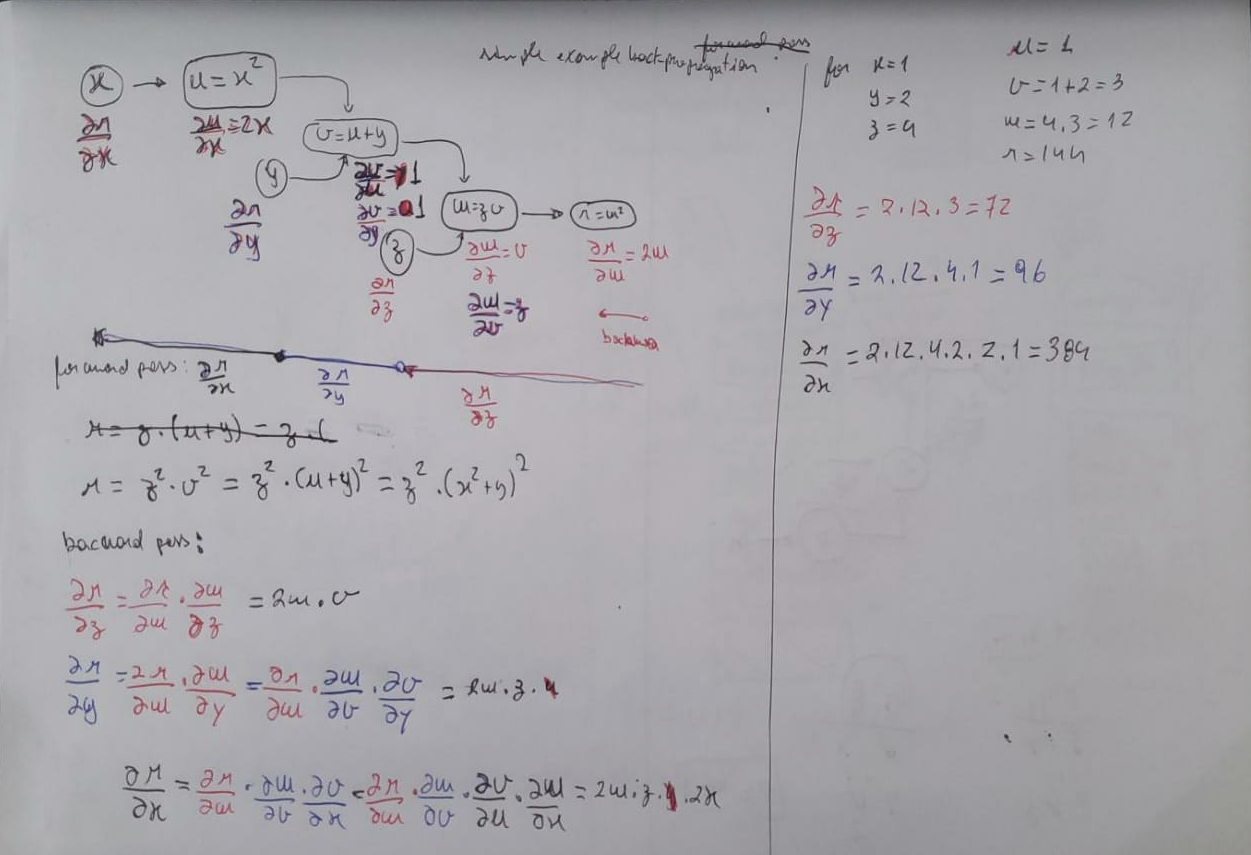 simple example backpropagation
x → u = x²
∂r/∂x
∂u/∂x = 2x
v = u+y
y
∂v/∂u = 1
∂v/∂y = 1
∂r/∂y
w = zv → r = w²
z
∂r/∂z
∂w/∂z = v
∂r/∂w = 2w
∂w/∂v = z
←
forward pass: ∂r/∂x ∂r/∂y ∂r/∂z
r = z.(u+y) = z.(
r = z².v² = z².(u+y)² = z².(x²+y)²
bacward pass:
∂r/∂z = ∂r/∂w . ∂w/∂z = 2w.v
∂r/∂y = ∂r/∂w . ∂w/∂y = ∂r/∂w . ∂w/∂v . ∂v/∂y = 2w.z.1
∂r/∂x = ∂r/∂w . ∂w/∂v . ∂v/∂x = ∂r/∂w . ∂w/∂v . ∂v/∂u . ∂u/∂x = 2w.z.1.2x
forward pass
for x=1
y=2
z=4
u=1
v=1+2=3
w=4.3=12
r=144
∂r/∂z = 2.12.3=72
∂r/∂y = 2.12.4.1=96
∂r/∂x = 2.12.4.2.2.1=384